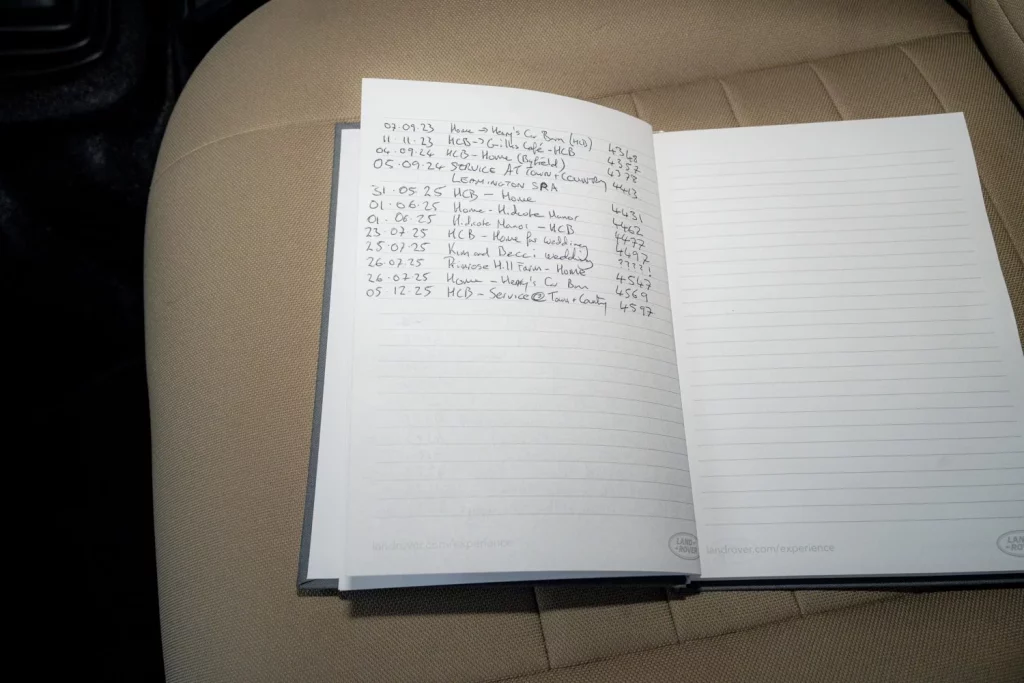 07.09.23 Home → Henry's Car Barn (HCB) 4348
11.11.23 HCB → Café - HCB 4357
04.09.24 HCB - Home (Byfield) 4378
05.09.24 SERVICE AT TOWN + COUNTRY 4413
LEAMINGTON SPA
31.05.25 HCB - Home 4431
01.06.25 Home - Hidcote Manor 4462
01.06.25 Hidcote Manor - HCB 4477
23.07.25 HCB - Home for wedding 4497
25.07.25 Kim and Becci wedding ?????
26.07.25 Primrose Hill Farm - Home 4547
26.07.25 Home - Henry's Car Barn 4569
05.12.25 HCB - Service @ Town + County 4597
landrover.com/experience
LAND-ROVER
landrover.com/experience